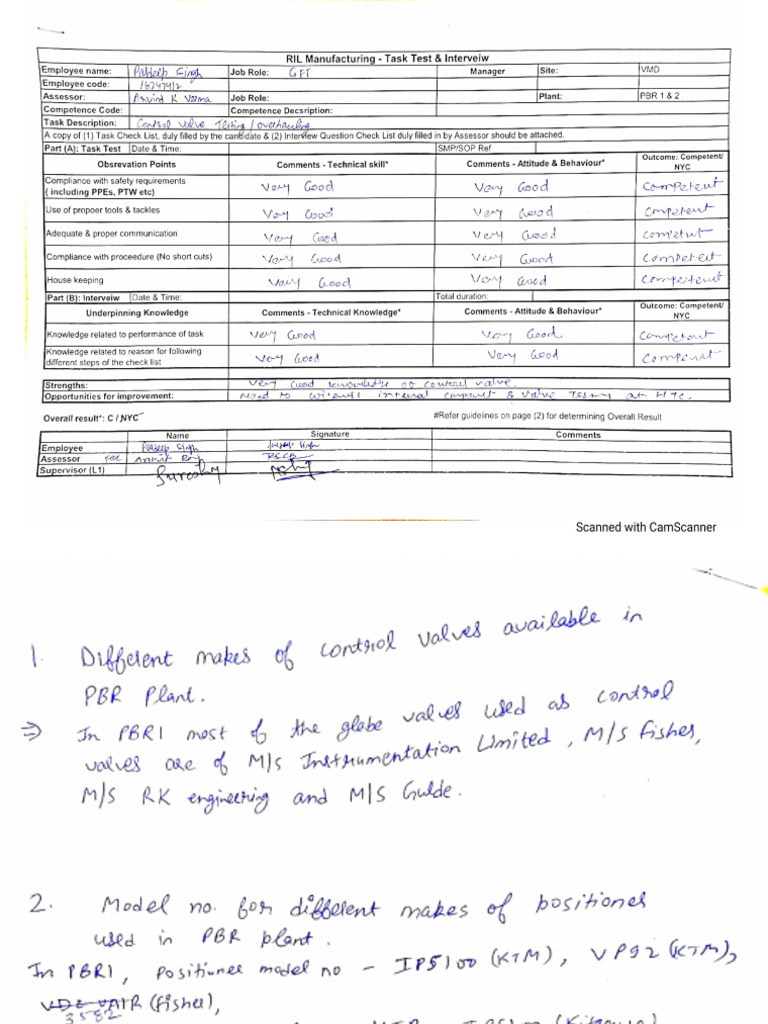 RIL Manufacturing - Task Test & Interveiw
Employee name: Paldeep Singh Job Role: GFT Manager Site: VMD
Employee code: 16747412
Assessor: Arvind K Varma Job Role: Plant: PBR 1 & 2
Competence Code: Competence Decsription:
Task Description: Control Valve Testing / overhauling
A copy of (1) Task Check List, duly filled by the candidate & (2) Interview Question Check List duly filled in by Assessor should be attached.
Part (A): Task Test Date & Time: SMP/SOP Ref
Obsrevation Points Comments - Technical skill* Comments - Attitude & Behaviour* Outcome: Competent/ NYC
Compliance with safety requirements
( including PPEs, PTW etc) Very Good Very Good Competent
Use of propoer tools & tackles Very Good Very Good Competent
Adequate & proper communication Very Good Very Good Competent
Compliance with proceedure (No short cuts) Very Good Very Good Competent
House keeping Very Good Very Good Competent
Part (B): Interveiw Date & Time: Total duration:
Underpinning Knowledge Comments - Technical Knowledge* Comments - Attitude & Behaviour* Outcome: Competent/ NYC
Knowledge related to performance of task Very Good Very Good Competent
Knowledge related to reason for following
different steps of the check list Very Good Very Good Competent
Strengths: Very Good knowledge of control valve
Opportunities for improvement: Need to internal & Valve Testing at
Overall result*: C / NYC #Refer guidelines on page (2) for determining Overall Result
Name Signature Comments
Employee Paldeep Singh
Assessor
Supervisor (L1)
Scanned with CamScanner
1. Different makes of control valves available in
PBR Plant.
⇒ In PBR1 most of the globe valves used as control
valves are of M/S Instrumentation Limited, M/S fisher,
M/S RK engineering and M/S Gulde.
2. Model no. for different makes of positioner
used in PBR plant.
In PBR1, Positioner model no - IP5100 (KTM), VP92 (KTM),
3582 (fisher),